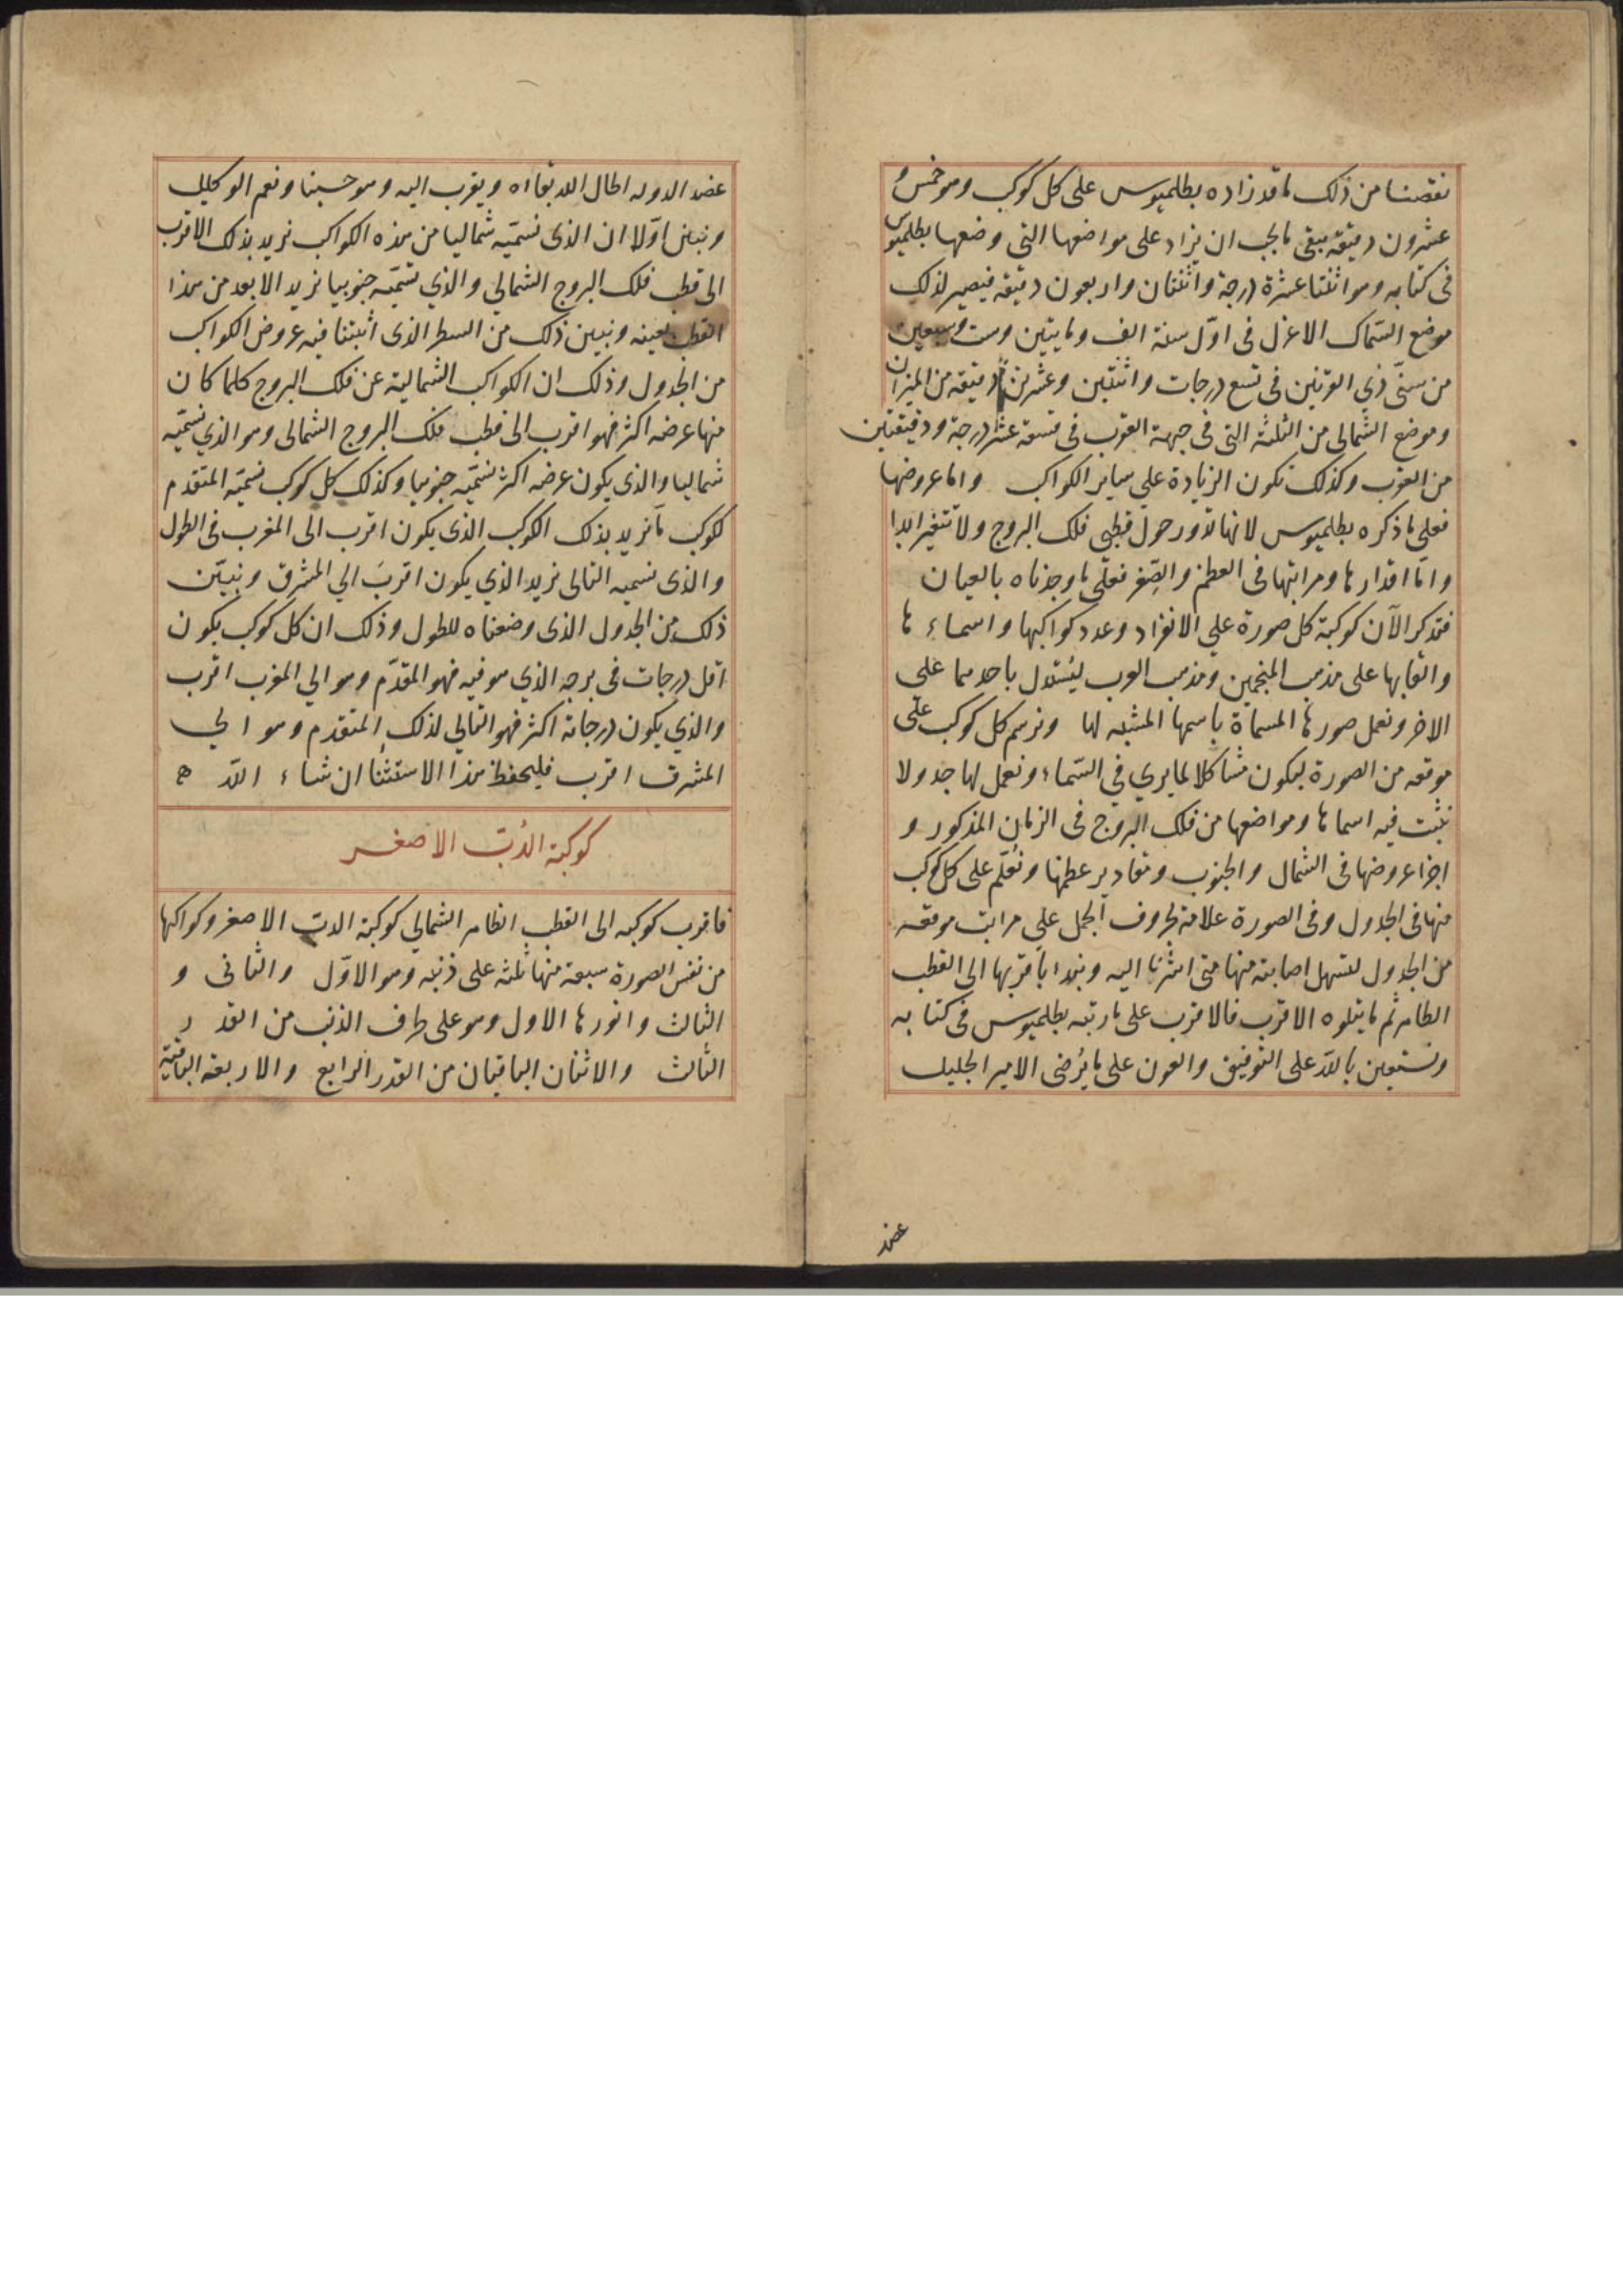 نقصنا من ذلك ما قد زاده بطلميوس على كل كوكب وهو خمس و
عشرون دقيقة يبقى ما يجب ان يزاد على مواضعها التى وضعها بطلميوس
فى كتابه وهو اثنتا عشرة درجة واثنتان واربعون دقيقه فيصير لذلك
موضع السّماك الاعزل فى اوّل سنة الف ومايتين وست وسبعين
من سنّى ذي القرنين فى تسع درجات واثنتين وعشرين دقيقه من الميزان
وموضع الشمالى من الثلثه التى فى جبهة العقرب فى تسعة عشر درجة ودقيقتين
من العقرب وكذلك تكون الزيادة علي ساير الكواكب واما عروضها
فعلى ما ذكره بطلميوس لانها تدور حول قطبى فلك البروج ولا تتغير ابدا
وامّا اقدارها ومراتبها فى العظم والصِّغر فعلى ما وجدناه بالعيان
فنذكر الآن كوكبة كل صورة علي الانفراد وعدد كواكبها واسماءها
والقابها على مذهب المنجمين ومذهب العرب ليُستدل باحدهما على
الاخر ونعمل صورها المسماة باسمها المشبه لها ونرسم كل كوكب على
موقعه من الصورة ليكون مشاكلا لما يرى في السّماء ونعمل لها جدولا
نثبت فيه اسماها ومواضعها من فلك البروج فى الزمان المذكور و
اجزا عروضها فى الشمال والجنوب ومقادير عظمها ونُعلّم على كل كوكب
منها فى الجدول وفى الصورة علامة بحروف الجمل علي مراتب موقعه
من الجدول لتسهل اصابته منها متى اشرنا اليه ونبدا باقربها الى القطب
الظاهر ثم ما يتلوه الاقرب فالاقرب على ما رتبه بطلميوس فى كتابه
ونستعين بالله على التوفيق والعون على ما يُرضى الامير الجليل
عضد
عضد الدوله اطال الله بقااه ويقرب اليه وهو حسبنا ونعم الوكيل
ونبين اوّلا ان الذى نسمّيه شماليا من هذه الكواكب نريد بذلك الاقرب
الى قطب فلك البروج الشمالي والذي نسمّيه جنوبيا نريد الابعد من هذا
القطب بعينه ونبين ذلك من السطر الذى اثبتنا فيه عروض الكواكب
من الجدول وذلك ان الكواكب الشمالية عن فلك البروج كلما كان
منها عرضه اكثر فهو اقرب الى قطب فلك البروج الشمالى وهو الذي نسمّيه
شماليا والذى يكون عرضه اكثر نسمّيه جنوبيا وكذلك كل كوكب نسمّيه المتقدم
لكوكب ما نريد بذلك الكوكب الذى يكون اقرب الى المغرب فى الطول
والذى نسميه التالى نريد الذي يكون اقرب الي المشرق ونبيّن
ذلك من الجدول الذى وضعناه للطول وذلك ان كل كوكب يكون
اقل درجات فى برجه الذي هو فيه فهو المقدّم وهو الي المغرب اقرب
والذي يكون درجاته اكثر فهو التالي لذلك المتقدم وهو الي
المشرق اقرب فليحفظ هذا الاستثنا ان شاء اللّه ه
كوكبة الدُبّ الاصغر
فاقرب كوكبه الى القطب الظاهر الشمالي كوكبة الدب الاصغر وكواكبها
من نفس الصورة سبعة منها ثلثه على ذنبه وهو الاوّل والثانى و
الثالث وانورها الاول وهو على طرف الذنب من القدر
الثالث والاثنان الباقيان من القدر الرابع والاربعة الباقية